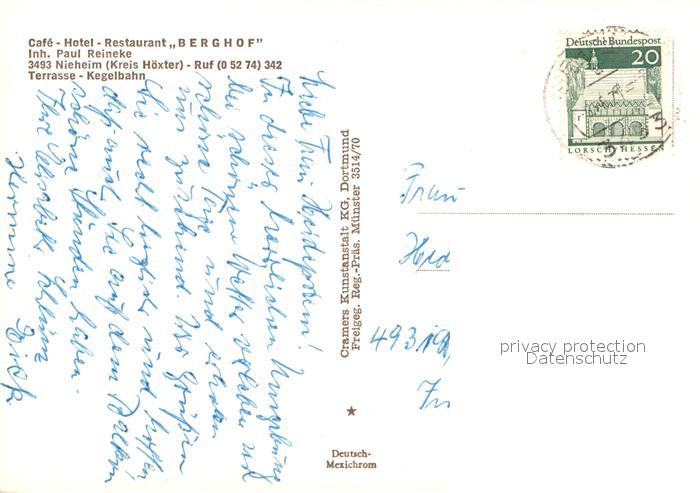 Café - Hotel - Restaurant „BERGHOF"
Inh. Paul Reineke
3493 Nieheim (Kreis Höxter) - Ruf (0 52 74) 342
Terrasse - Kegelbahn
Deutsche Bundespost
20
LORSCH/HESSEN
Liebe Frau
In dieser herrlichen Umgebung
bei schönem Wetter verleben wir
schöne Tage und erholen
uns Wir grüßen
Sie recht herzlich und hoffen
daß auch Sie auf dem Balkon
schöne Stunden haben.
Ihre Elisabeth
Hermine
Cramers Kunstanstalt KG, Dortmund
Freigeg. Reg.-Präs. Münster 3514/70
Frau
privacy protection
Datenschutz
Deutsch-
Mexichrom